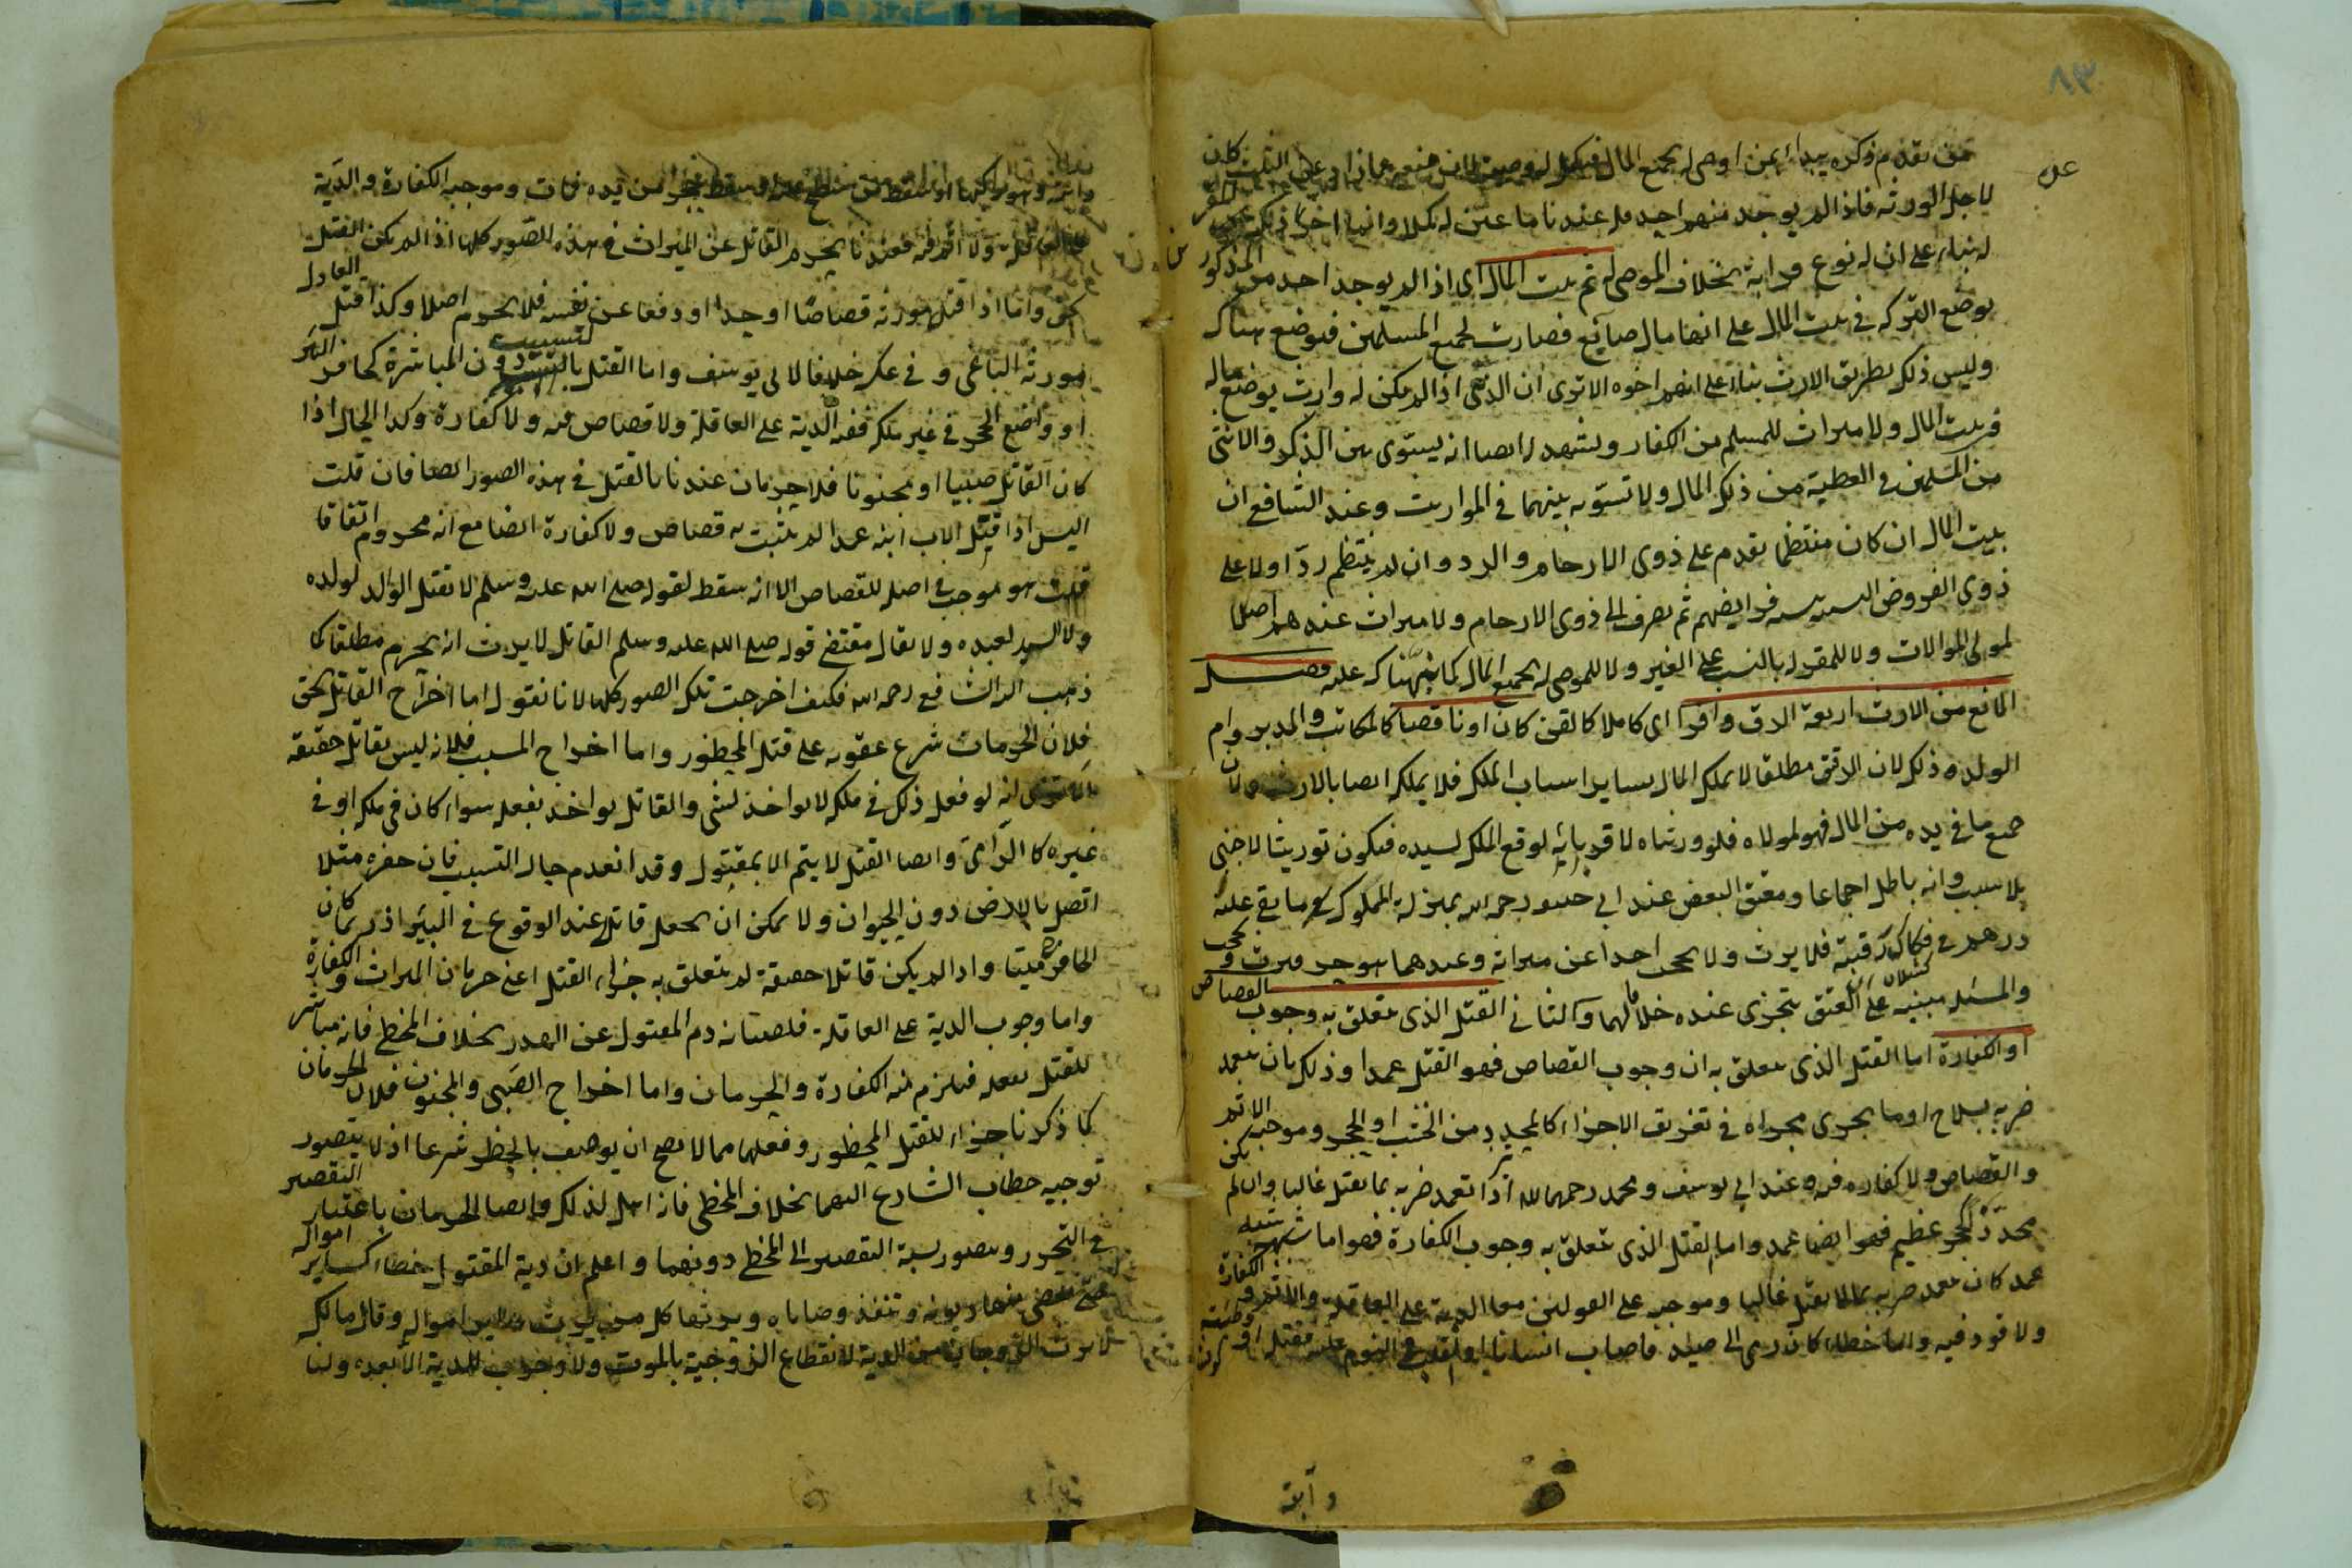 ٨٣
من تقدم ذكره يبدا بمن اوصى له بجميع المال فيكمل له وصيته لان منعه عما زاد على الثلث كان
لاجل الورثة فاذا لم يوجد منهم احد فله عندنا ما عين له كملا وانما اخر ذكر عن المقر
له بناء على ان له نوع قرابة بخلاف الموصى له ثم بيت المال اى اذا لم يوجد احد من المذكور
يوضع التركة فى بيت المال على انها مال ضايع فصارت لجميع المسلمين فيوضع هناك
وليس ذلك بطريق الارث بناء على انهم اخوه الا ترى ان الذمى اذا لم يكن له وارث يوضع ماله
فى بيت المال ولا ميراث للمسلم من الكفار ويشهد له ايضا انه يستوى بين الذكر والانثى
من المسلمين فى العطية من ذلك المال ولا تسوية بينهما فى المواريث وعند الشافعى ان
بيت المال ان كان منتظما يقدم على ذوى الارحام والرد وان لم ينتظم ردّ اولا على
ذوى الفروض النسبية بنسبة فرايضهم ثم يصرف الى ذوى الارحام ولا ميراث عندهم اصلا
لمولى الموالات ولا للمقر له بالنسب على الغير ولا للموصى له بجميع المال كما نبهناك عليه فصل
المانع من الارث اربعة الرق وافرا اى كاملا كالقن كان او ناقصا كالمكاتب والمدبر وام
الولد وذلك لان الرقيق مطلقا لا يملك المال بساير اسباب الملك فلا يملك ايضا بالارث ولان
جميع ما فى يده من المال فهو لمولاه فلو ورثناه لاقربائه لوقع الملك لسيده فيكون توريثا لاجنبى
بلا سبب وانه باطل اجماعا ومعتق البعض عند ابى حنيفة رحمه الله بمنزلة المملوك ما بقى عليه
درهم فى فكاك رقبته فلا يرث ولا يحجب احدا عن ميراثه وعندهما هو حر فيرث ويحجب
والمسئلة مبنية على ان العتق يتجزى عنده خلافا لهما والثانى القتل الذى يتعلق به وجوب القصاص
او الكفارة اما القتل الذى يتعلق به وجوب القصاص فهو القتل عمدا وذلك بان يتعمد
ضربه بسلاح او ما يجرى مجراه فى تفريق الاجزاء كالمحدد من الخشب او الحجر وموجبه الاثم
والقصاص ولا كفارة فيه وعند ابى يوسف ومحمد رحمهما الله اذا تعمد ضربه بما يقتل غالبا وان لم يكن
محددا كحجر عظيم فهو ايضا عمد واما القتل الذى يتعلق به وجوب الكفارة فهو اما شبه
عمد كان يتعمد ضربه بما لا يقتل غالبا وموجبه على القولين معا الدية على العاقلة والاثم والكفارة
ولا قود فيه واما خطاء كان رمى الى صيد فاصاب انسانا او انقلب فى النوم عليه فقتله او
وابته
وابته وهو راكبها او سقط من سطح عليه او سقط حجر من يده فمات وموجبه الكفارة والدية
على العاقلة ولا اثم فيه فعندنا يحرم القاتل عن الميراث فى هذه الصور كلها اذا لم يكن القتل
بحق واما اذا قتل مورثه قصاصا او حدا او دفعا عن نفسه فلا يحرم اصلا وكذا قتل العادل
مورثه الباغى وفى عكسه خلاف لابى يوسف واما القتل بالتسبيب دون المباشرة كحافر البئر
او واضع الحجر فى غير ملكه ففيه الدية على العاقلة ولا قصاص فيه ولا كفارة وكذا الحال اذا
كان القاتل صبيا او مجنونا فلا حرمان عندنا بالقتل فى هذه الصور ايضا فان قلت
اليس اذا قتل الاب ابنه عمدا لم يثبت به قصاص ولا كفارة ايضا مع انه محروم اتفاقا
قلت هو موجب فى اصله للقصاص الا انه سقط لقوله صلى الله عليه وسلم لا يقتل الوالد لولده
ولا السيد لعبده ولا يقال مقتضى قوله صلى الله عليه وسلم القاتل لا يرث انه يحرم مطلقا كما
ذهب اليه الشافعى رحمه الله فكيف اخرجت تلك الصور كلها لانا نقول اما اخراج القاتل بحق
فلان الحرمان شرع عقوبة على قتل المحظور واما اخراج المسبب فلانه ليس بقاتل حقيقة
الا ترى انه لو فعل ذلك فى ملكه لا يواخذ بشى والقاتل يواخذ بفعله سواء كان فى ملكه او فى
غيره كالرامى وايضا القتل لا يتم الا بمقتول وقد انعدم حال التسبيب فان حفره مثلا
اتصل بالارض دون الحيوان ولا يمكن ان يجعل قاتلا عند الوقوع فى البئر اذ ربما كان
الحافر ميتا واذا لم يكن قاتلا حقيقة لم يتعلق به جزاء القتل اعنى حرمان الميراث والكفارة
واما وجوب الدية على العاقلة فلصيانة دم المقتول عن الهدر بخلاف المخطى فانه مباشر
للقتل بفعله فيلزم فيه الكفارة والحرمان واما اخراج الصبى والمجنون فلان الحرمان
كما ذكرنا جزاء للقتل المحظور وفعلهما مما لا يصح ان يوصف بالحظر شرعا اذ لا يتصور
توجيه خطاب الشارع اليهما بخلاف المخطى فانه اهل لذلك وايضا الحرمان باعتبار التقصير
فى التحرز ويتصور نسبة التقصير الى المخطى دونهما واعلم ان دية المقتول خطاء كساير امواله
حتى تقضى منها ديونه وتنفذ وصاياه ويرثها كل من يرث ساير امواله وقال مالك
لا يرث الزوجان من الدية لانقطاع الزوجية بالموت ولا وجوب للدية الا بعده ولنا